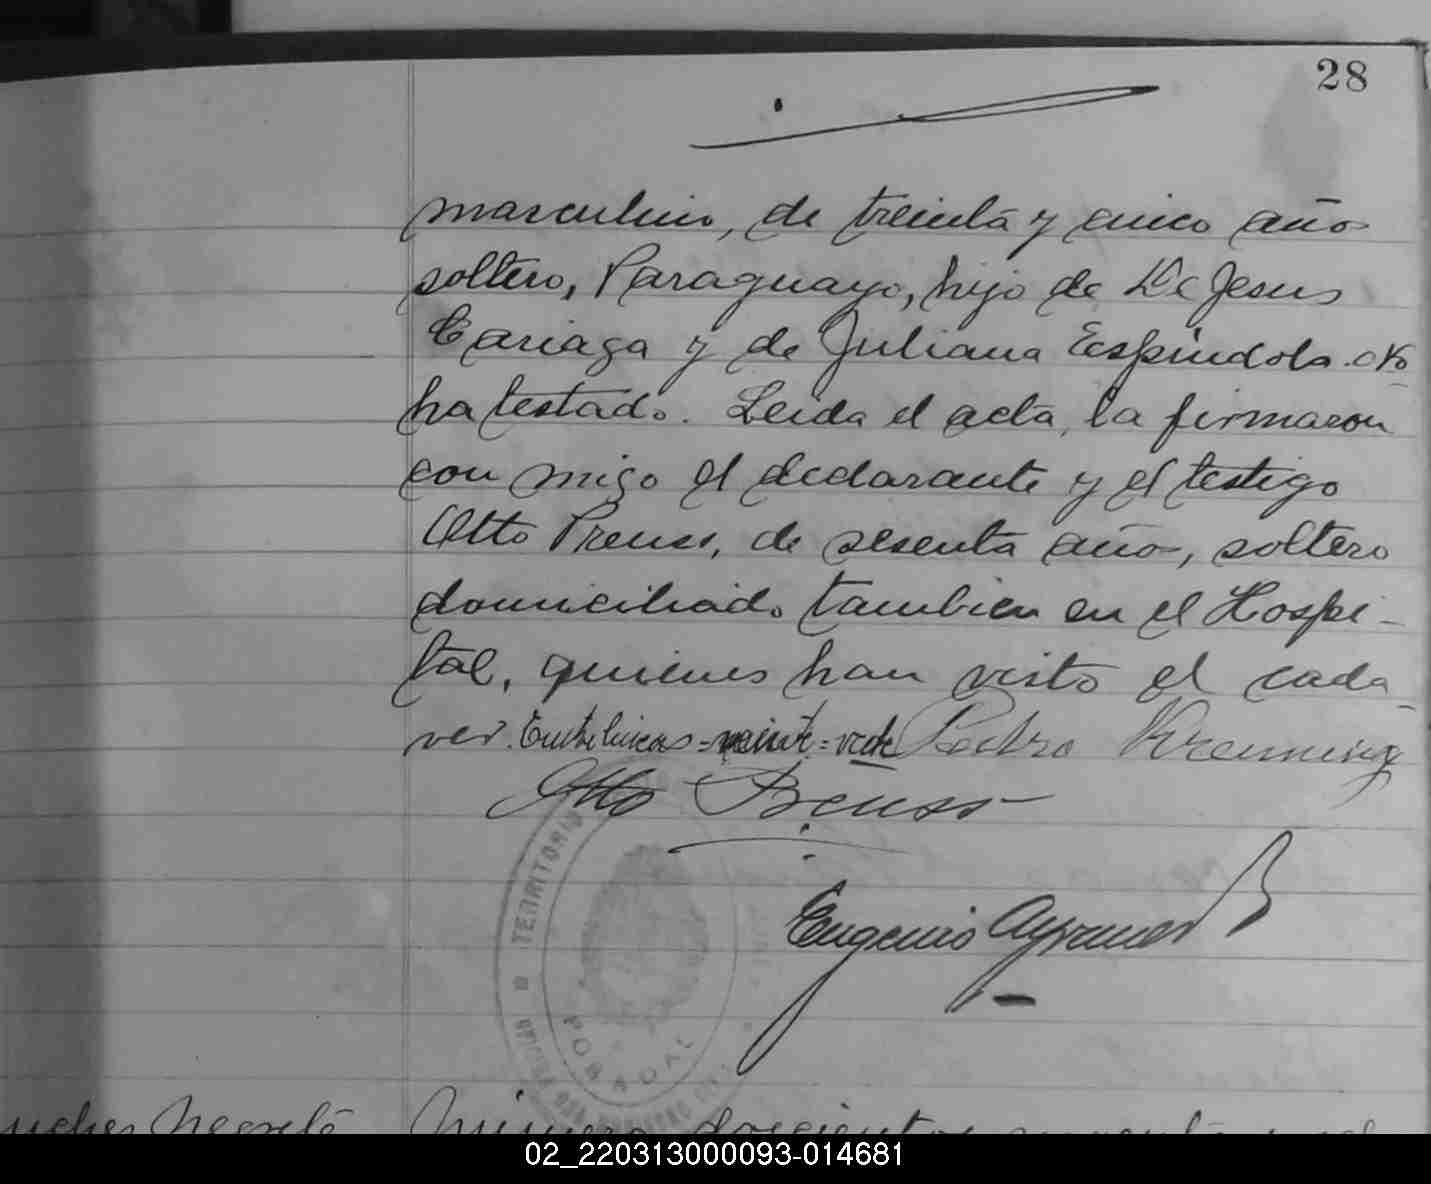 28
masculino, de treinta y cinco año
soltero, Paraguayo, hijo de De Jesus
Cariaga y de Juliana Espíndola. No
ha testado. Leida el acta, la firmaron
con migo el declarante y el testigo
Otto Preuss, de sesenta años, soltero
domiciliado tambien en el Hospi-
tal, quienes han visto el cada
ver. Entrelineas = veinte = vale Pedro
Otto Preuss
Eugenio
TERRITORIO
POSADAS
Número doscientos
02_220313000093-014681